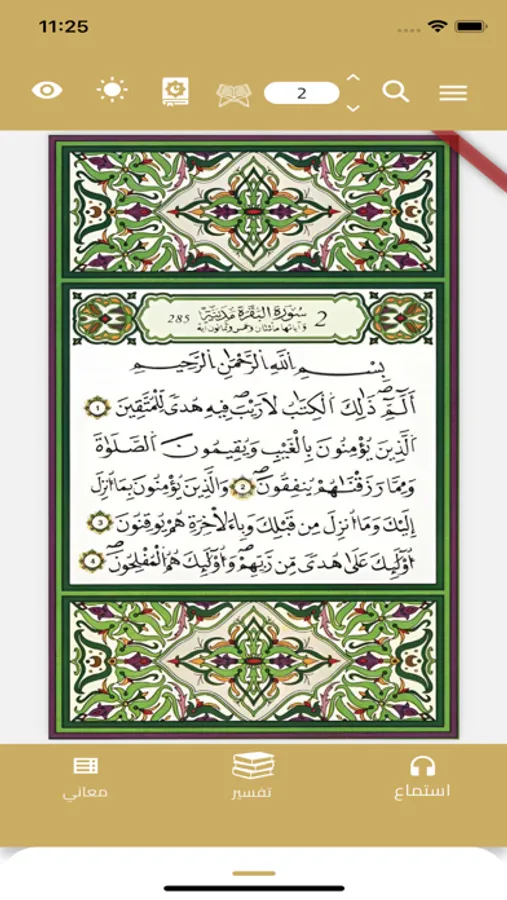 11:25
2
2 سُورَةُ البَقَرَةِ مَدَنِيَّةٌ 285
وَآيَاتُهَا مِائَتَانِ وَخَمْسٌ وَثَمَانُونَ آيَة
بِسْمِ اِللَّهِ اِلرَّحْمَٰنِ اِلرَّحِيمِ
أَلَٓمِّٓۖ ذَٰلِكَ اَلْكِتَٰبُ لَا رَيْبَۖ فِيهِ هُدىً لِّلْمُتَّقِينَ 1
اَلذِينَ يُؤْمِنُونَ بِالْغَيْبِ وَيُقِيمُونَ اَلصَّلَوٰةَ
وَمِمَّا رَزَقْنَٰهُمْ يُنفِقُونَۖ 2 وَالذِينَ يُؤْمِنُونَ بِمَا أُنزِلَ
إِلَيْكَ وَمَا أُنزِلَ مِن قَبْلِكَ وَبِالَاخِرَةِ هُمْ يُوقِنُونَ 3
أُوْلَٰٓئِكَ عَلَىٰ هُدىً مِّن رَّبِّهِمْۖ وَأُوْلَٰٓئِكَ هُمُ اُلْمُفْلِحُونَۖ 4
استماع
تفسير
معاني